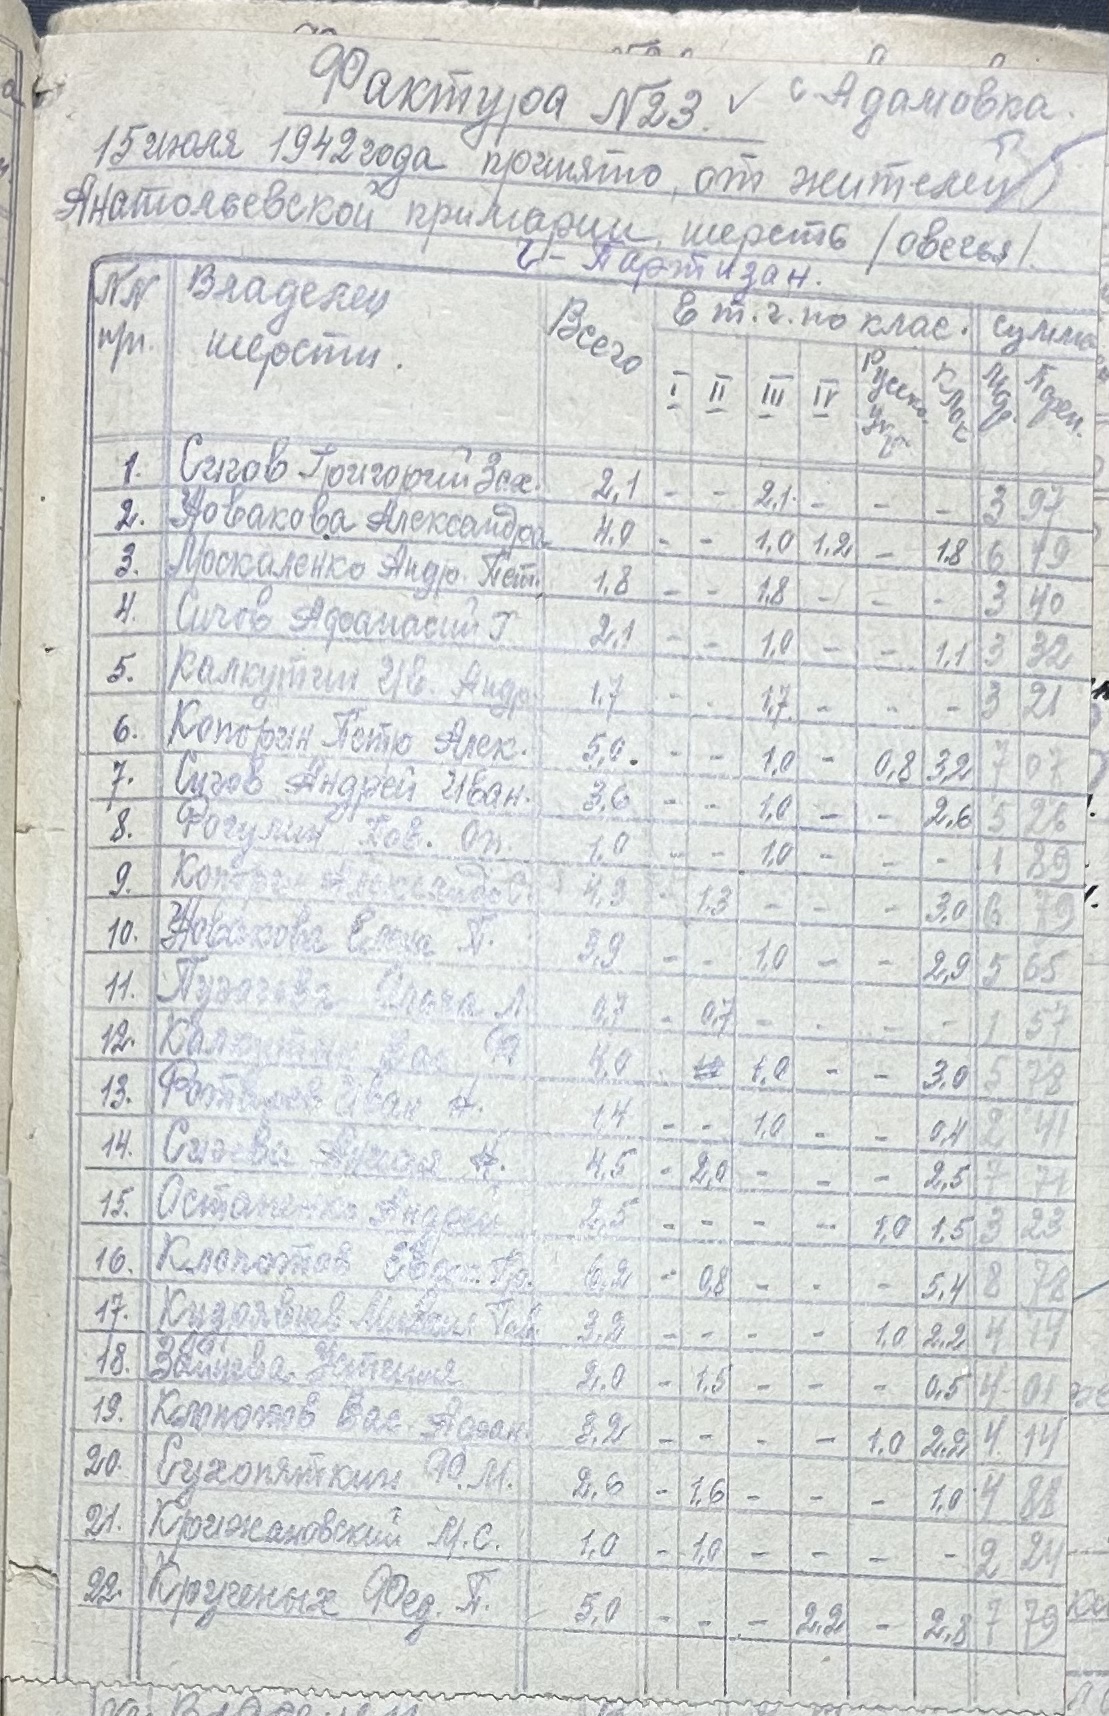 Фактура №23. с. Адамовка.
15 июля 1942 года принято от жителей
Анатольевской примарии шерсть /овечья/.
2 - Партизан.
NN пп. Владелец шерсти. Всего В т.ч. по клас. сумма
I II III IV Русск. Клок Мар. Пфен.
1. Сычов Григорий Зах. 2,1 - - 2,1 - - - 3 97
2. Новакова Александра 4,0 - - 1,0 1,2 - 1,8 6 19
3. Москаленко Андр. Пет. 1,8 - - 1,8 - - - 3 40
4. Сычов Афанасий Г. 2,1 - - 1,0 - - 1,1 3 32
5. Калкутин Ив. Андр. 1,7 - - 1,7 - - - 3 21
6. Копорин Петр Алек. 5,0 - - 1,0 - 0,8 3,2 7 07
7. Сычов Андрей Иван. 3,6 - - 1,0 - - 2,6 5 26
8. Рогулин Пав. 1,0 - - 1,0 - - - 1 89
9. Копорин Александр 4,3 - 1,3 - - - 3,0 6 79
10. Новакова Елена П. 3,9 - - 1,0 - - 2,9 5 65
11. Пугачева Л. 0,7 - 0,7 - - - - 1 57
12. Калкутин Вас. 4,0 - 1,0 - - 3,0 5 78
13. Иван Н. 1,4 - - 1,0 - - 0,4 2 41
14. Сычева 4,5 - 2,0 - - - 2,5 7 71
15. Остапенко Андрей 2,5 - - - - 1,0 1,5 3 23
16. Клопотов Гр. 6,2 - 0,8 - - - 5,4 8 78
17. Михаил Гав. 3,2 - - - - 1,0 2,2 4 14
18. Зайцева Устинья 2,0 - 1,5 - - - 0,5 4 01
19. Клопотов Вас. Афан. 3,2 - - - - 1,0 2,2 4 14
20. Сухопяткин Ф.М. 2,6 - 1,6 - - - 1,0 4 88
21. Крыжановский М.С. 1,0 - 1,0 - - - - 2 24
22. Крученых Фед. П. 5,0 - - - 2,2 - 2,8 7 79